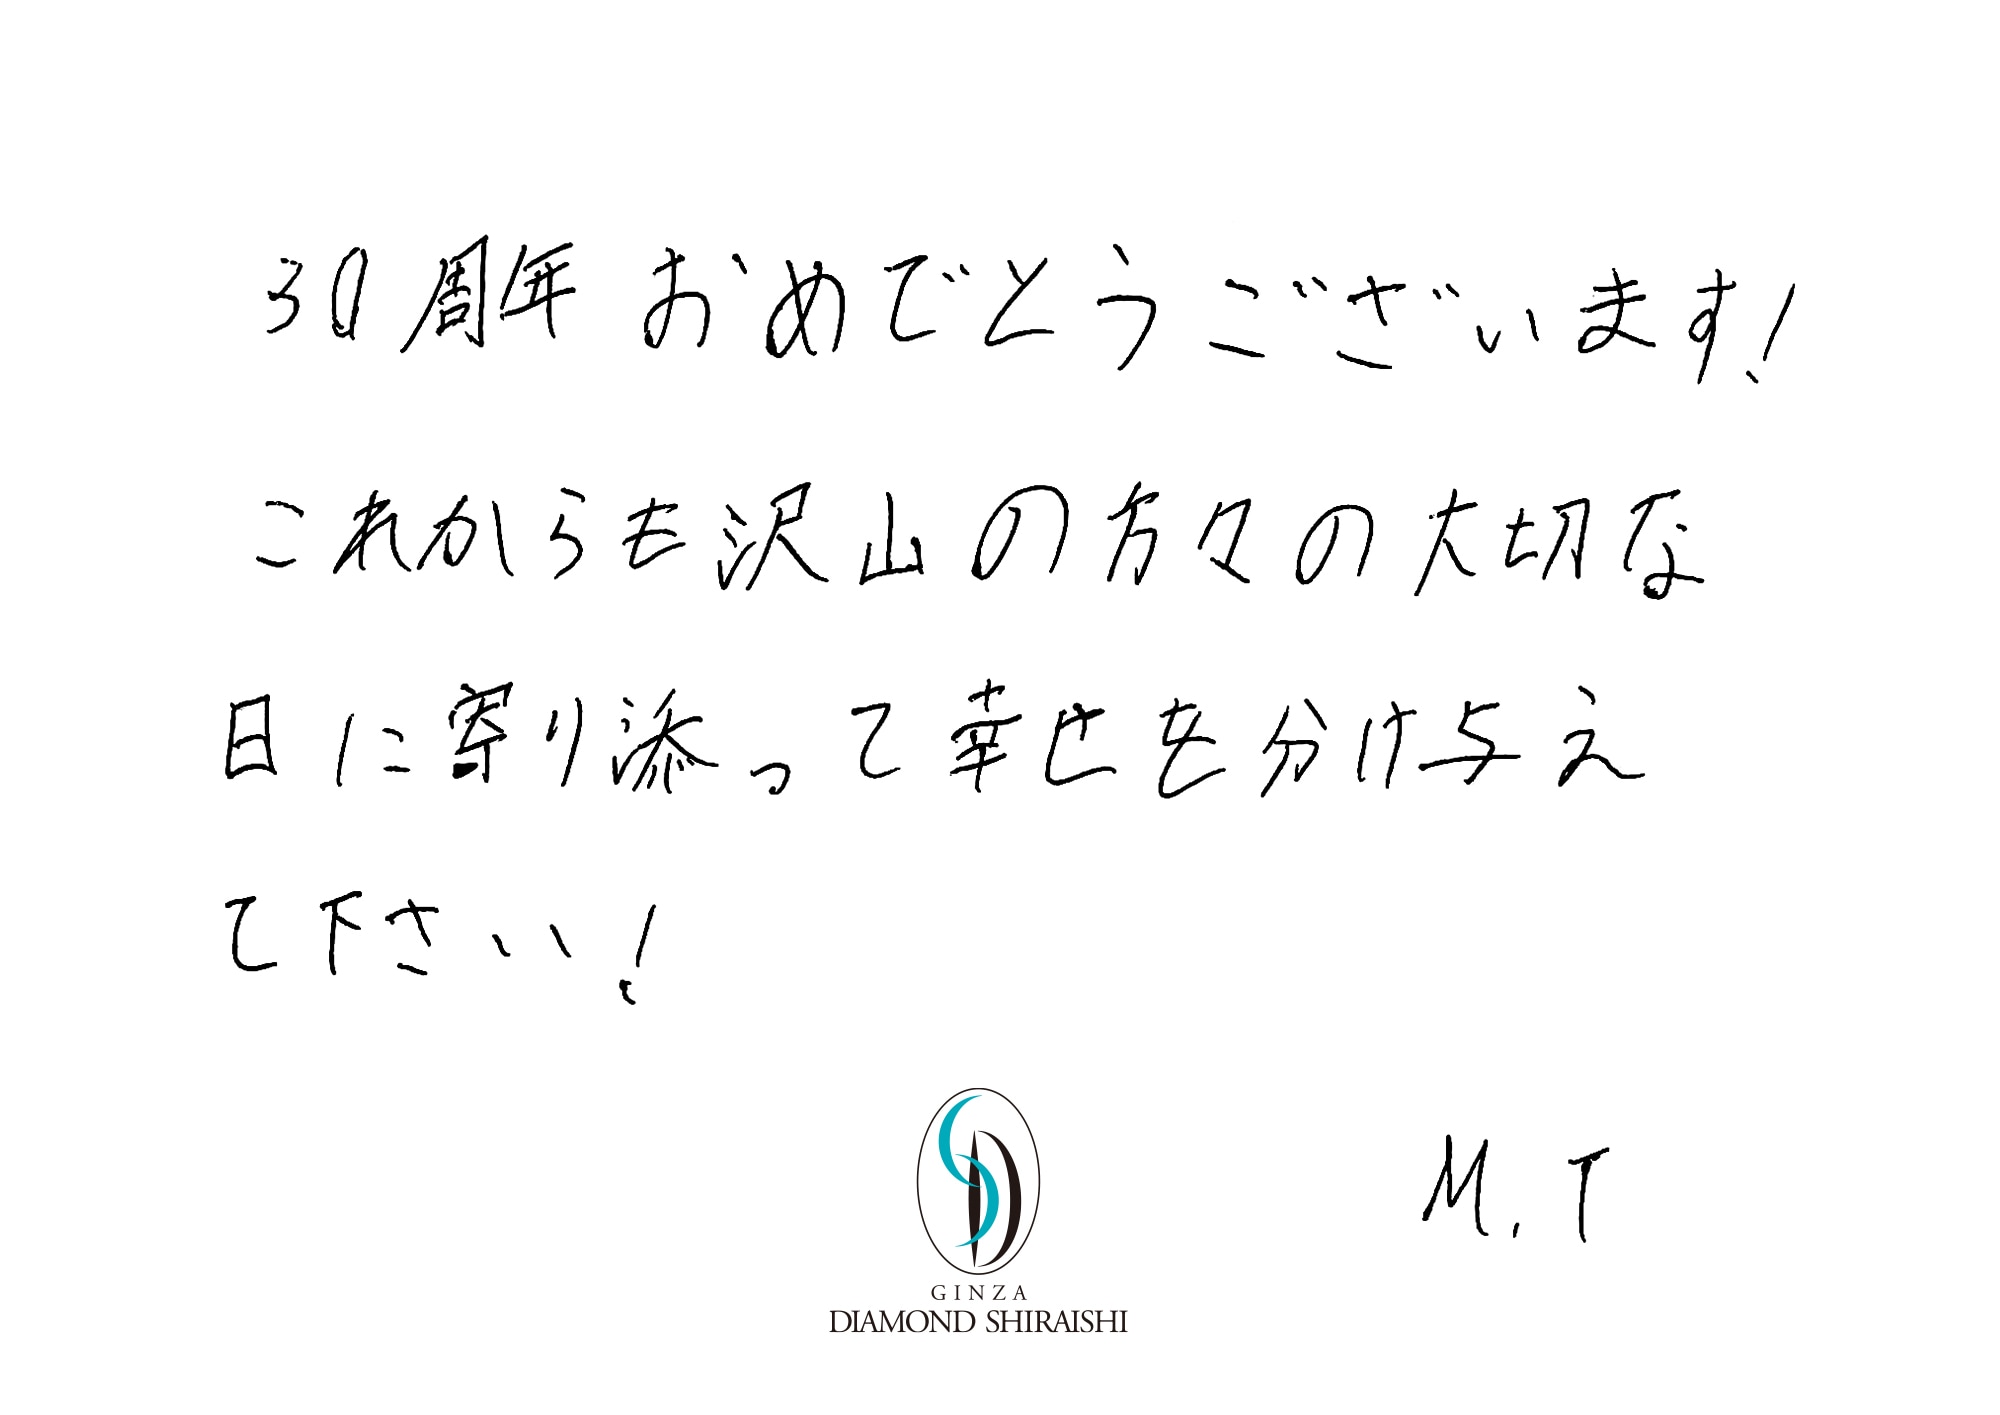 30周年おめでとうございます!
これからも沢山の方々の大切な
日に寄り添って幸せを分け与え
て下さい!
M.T
GINZA
DIAMOND SHIRAISHI